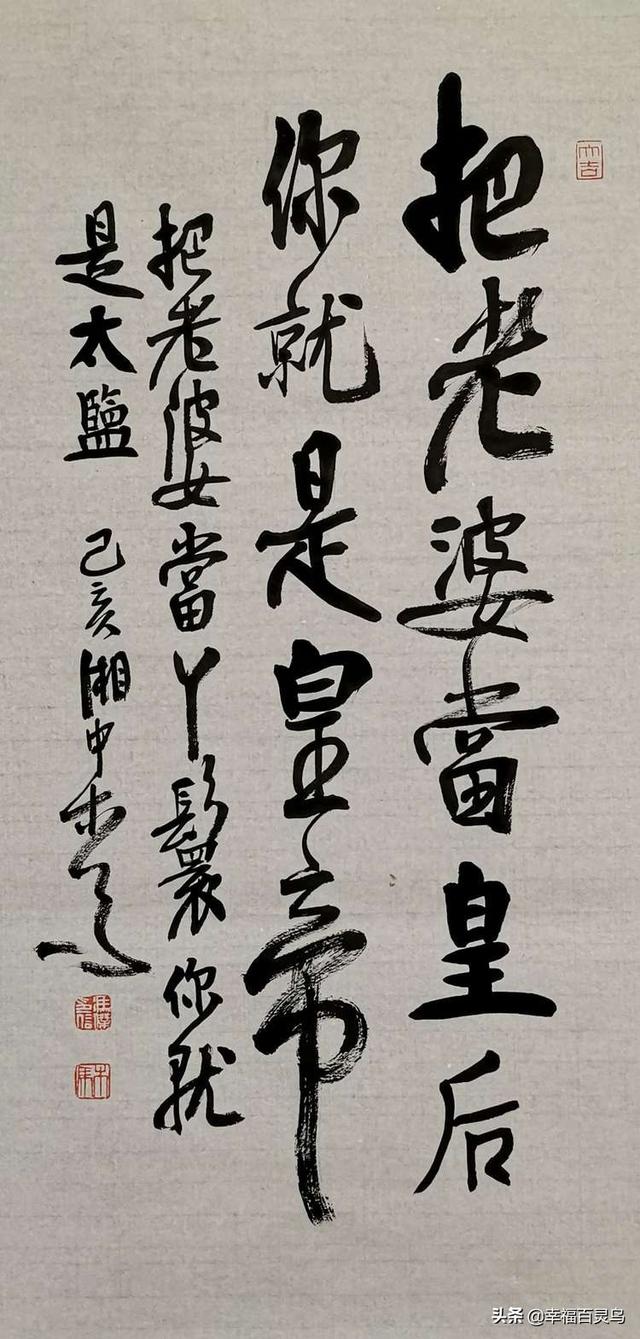 大吉
把老婆當皇后
你就是皇帝
把老婆當丫鬟你就
是太監 己亥湘中木馬
头条 @幸福百灵鸟